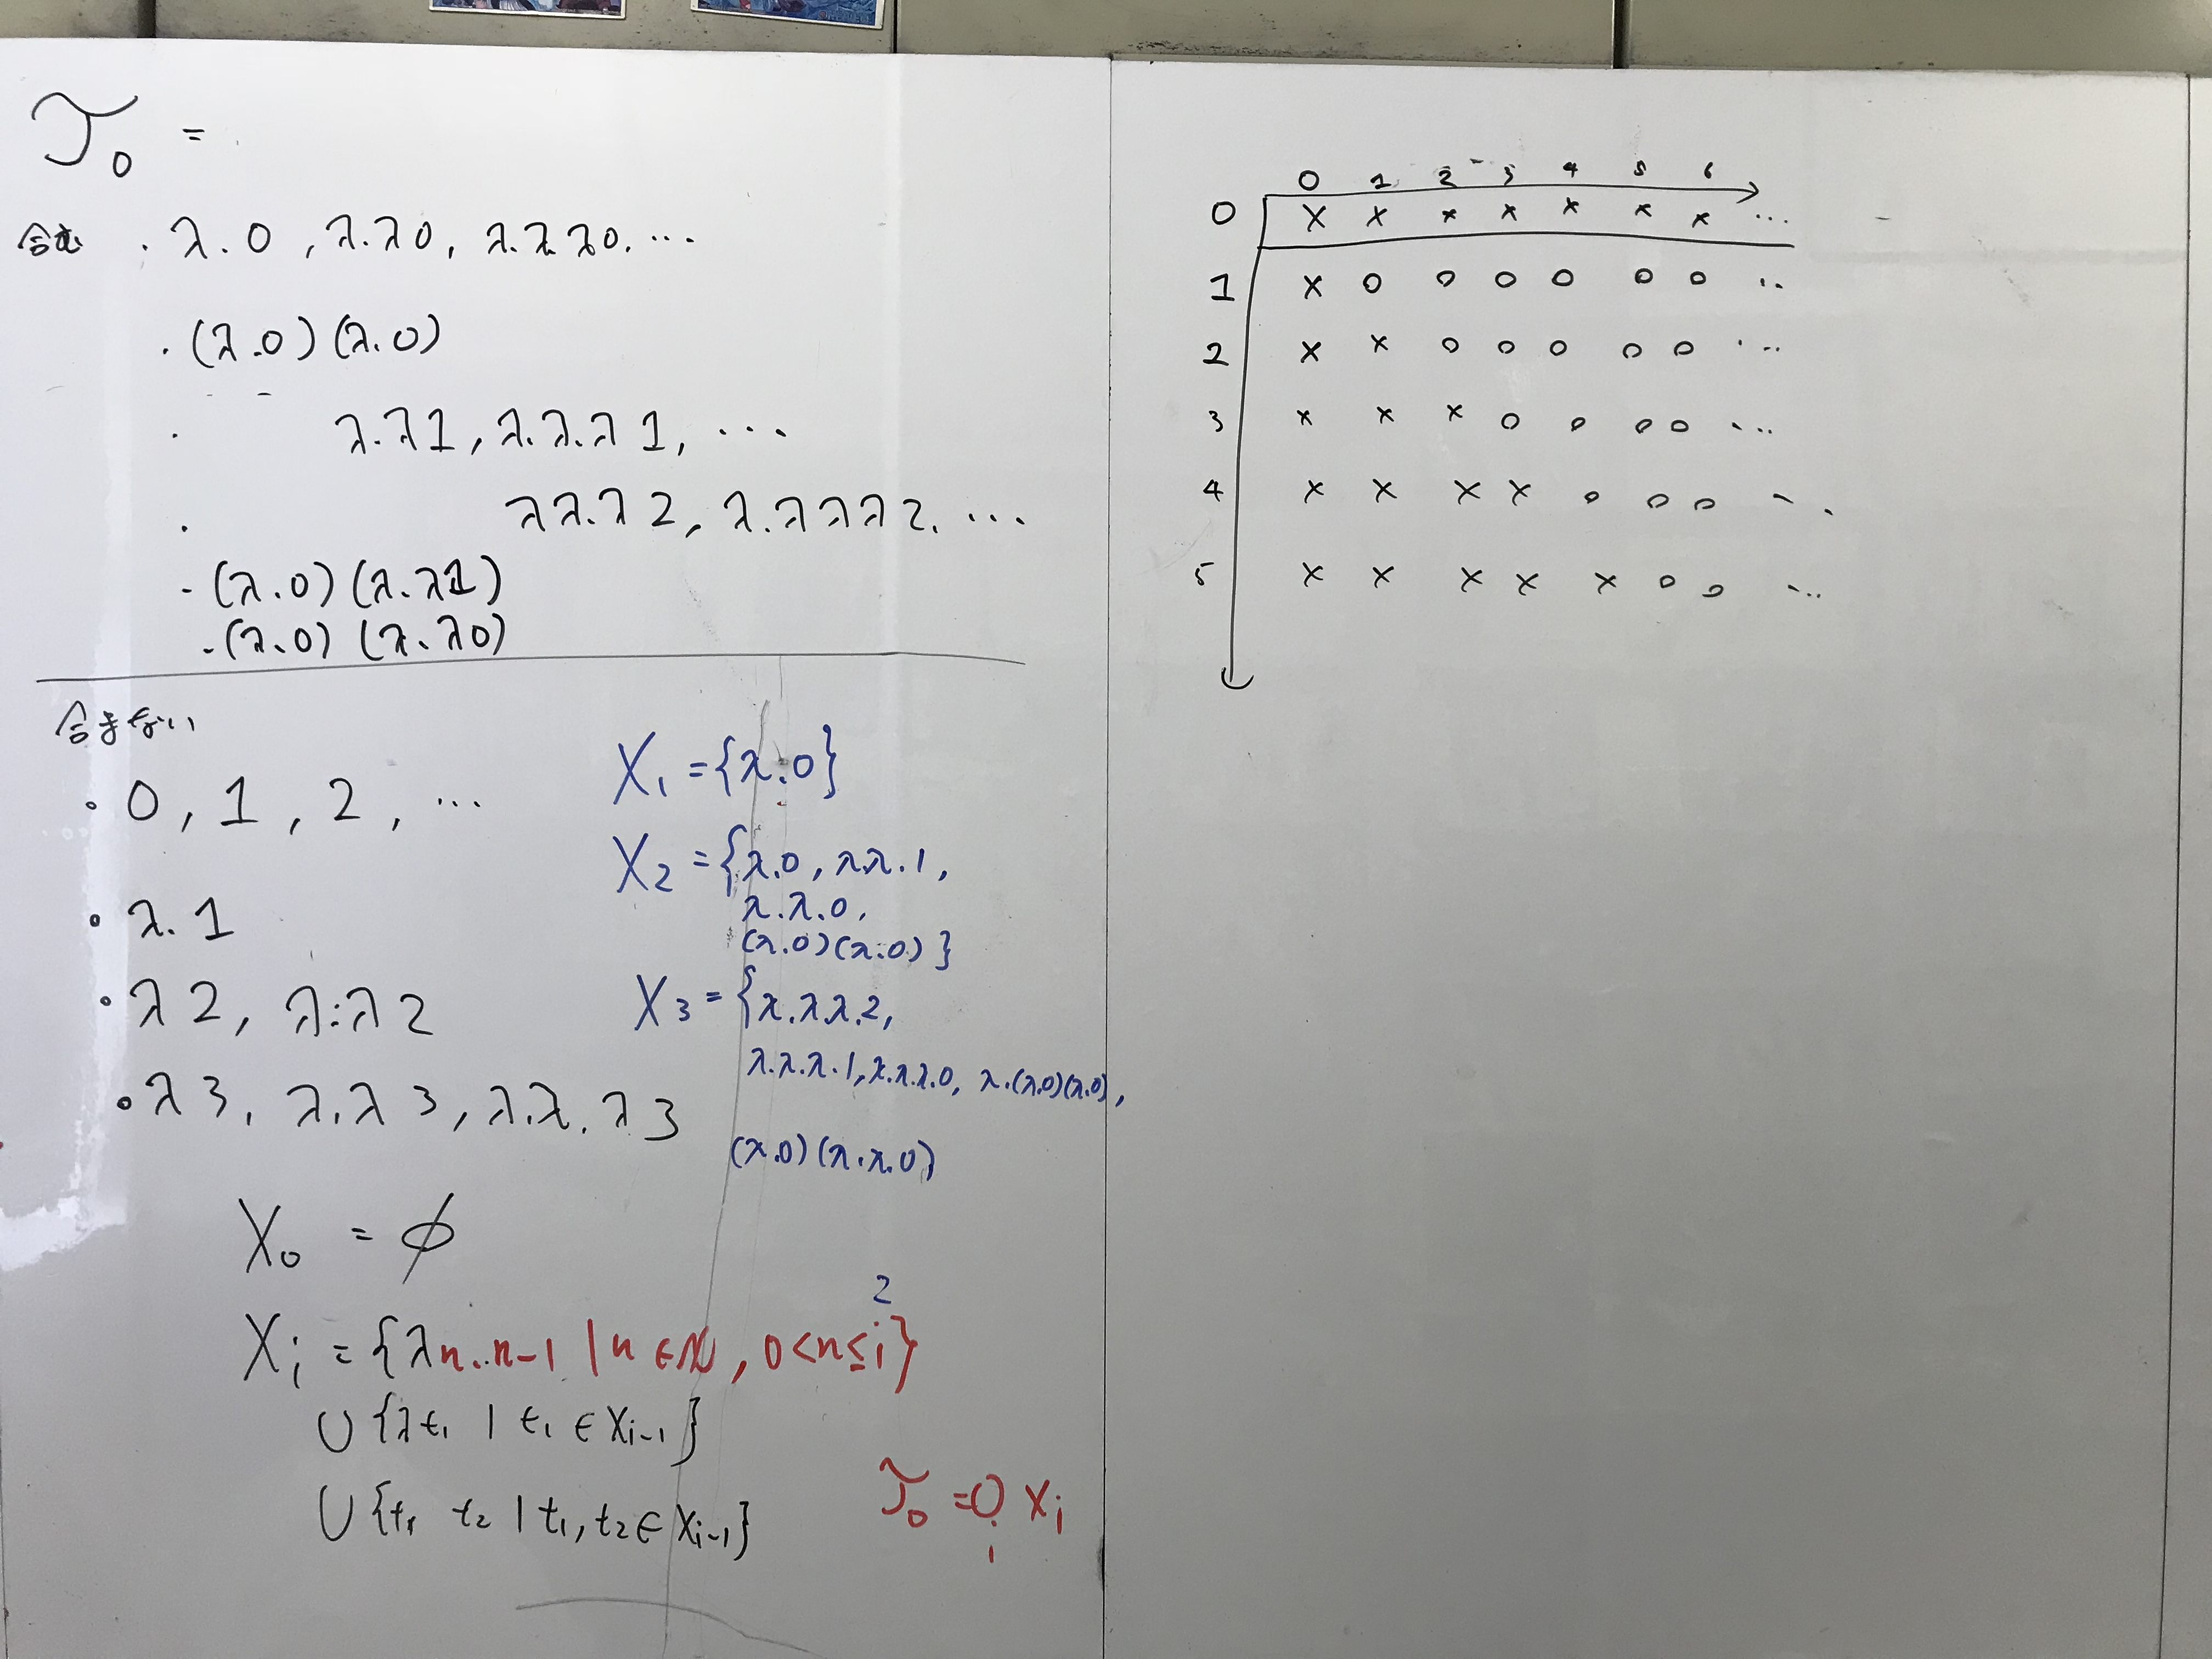 𝒯₀ =
含む · λ.0, λ.λ0, λ.λ.λ0. ...
· (λ.0)(λ.0)
· λ.λ1, λ.λ.λ1, ...
· λλ.λ2, λ.λλλ2. ...
- (λ.0)(λ.λ1)
- (λ.0)(λ.λ0)
含まない
· 0, 1, 2, ...
· λ.1
· λ2, λ.λ2
· λ3, λ.λ3, λ.λ.λ3
X₁ = {λ.0}
X₂ = {λ.0, λλ.1,
λ.λ.0,
(λ.0)(λ.0)}
X₃ = {λ.λλ.2,
λ.λ.λ.1, λ.λ.λ.0, λ.(λ.0)(λ.0),
(λ.0)(λ.λ.0)
X₀ = ∅
2
Xᵢ = {λn..n-1 | n ∈ ℕ, 0<n≤i}
∪ {λt₁ | t₁ ∈ Xᵢ₋₁}
∪ {t₁ t₂ | t₁, t₂ ∈ Xᵢ₋₁}
𝒯₀ = ∪ᵢ Xᵢ
0 1 2 3 4 5 6
0 × × × × × × × ...
1 × o o o o o o ...
2 × × o o o o o ...
3 × × × o o o o ...
4 × × × × o o o ...
5 × × × × × o o ...